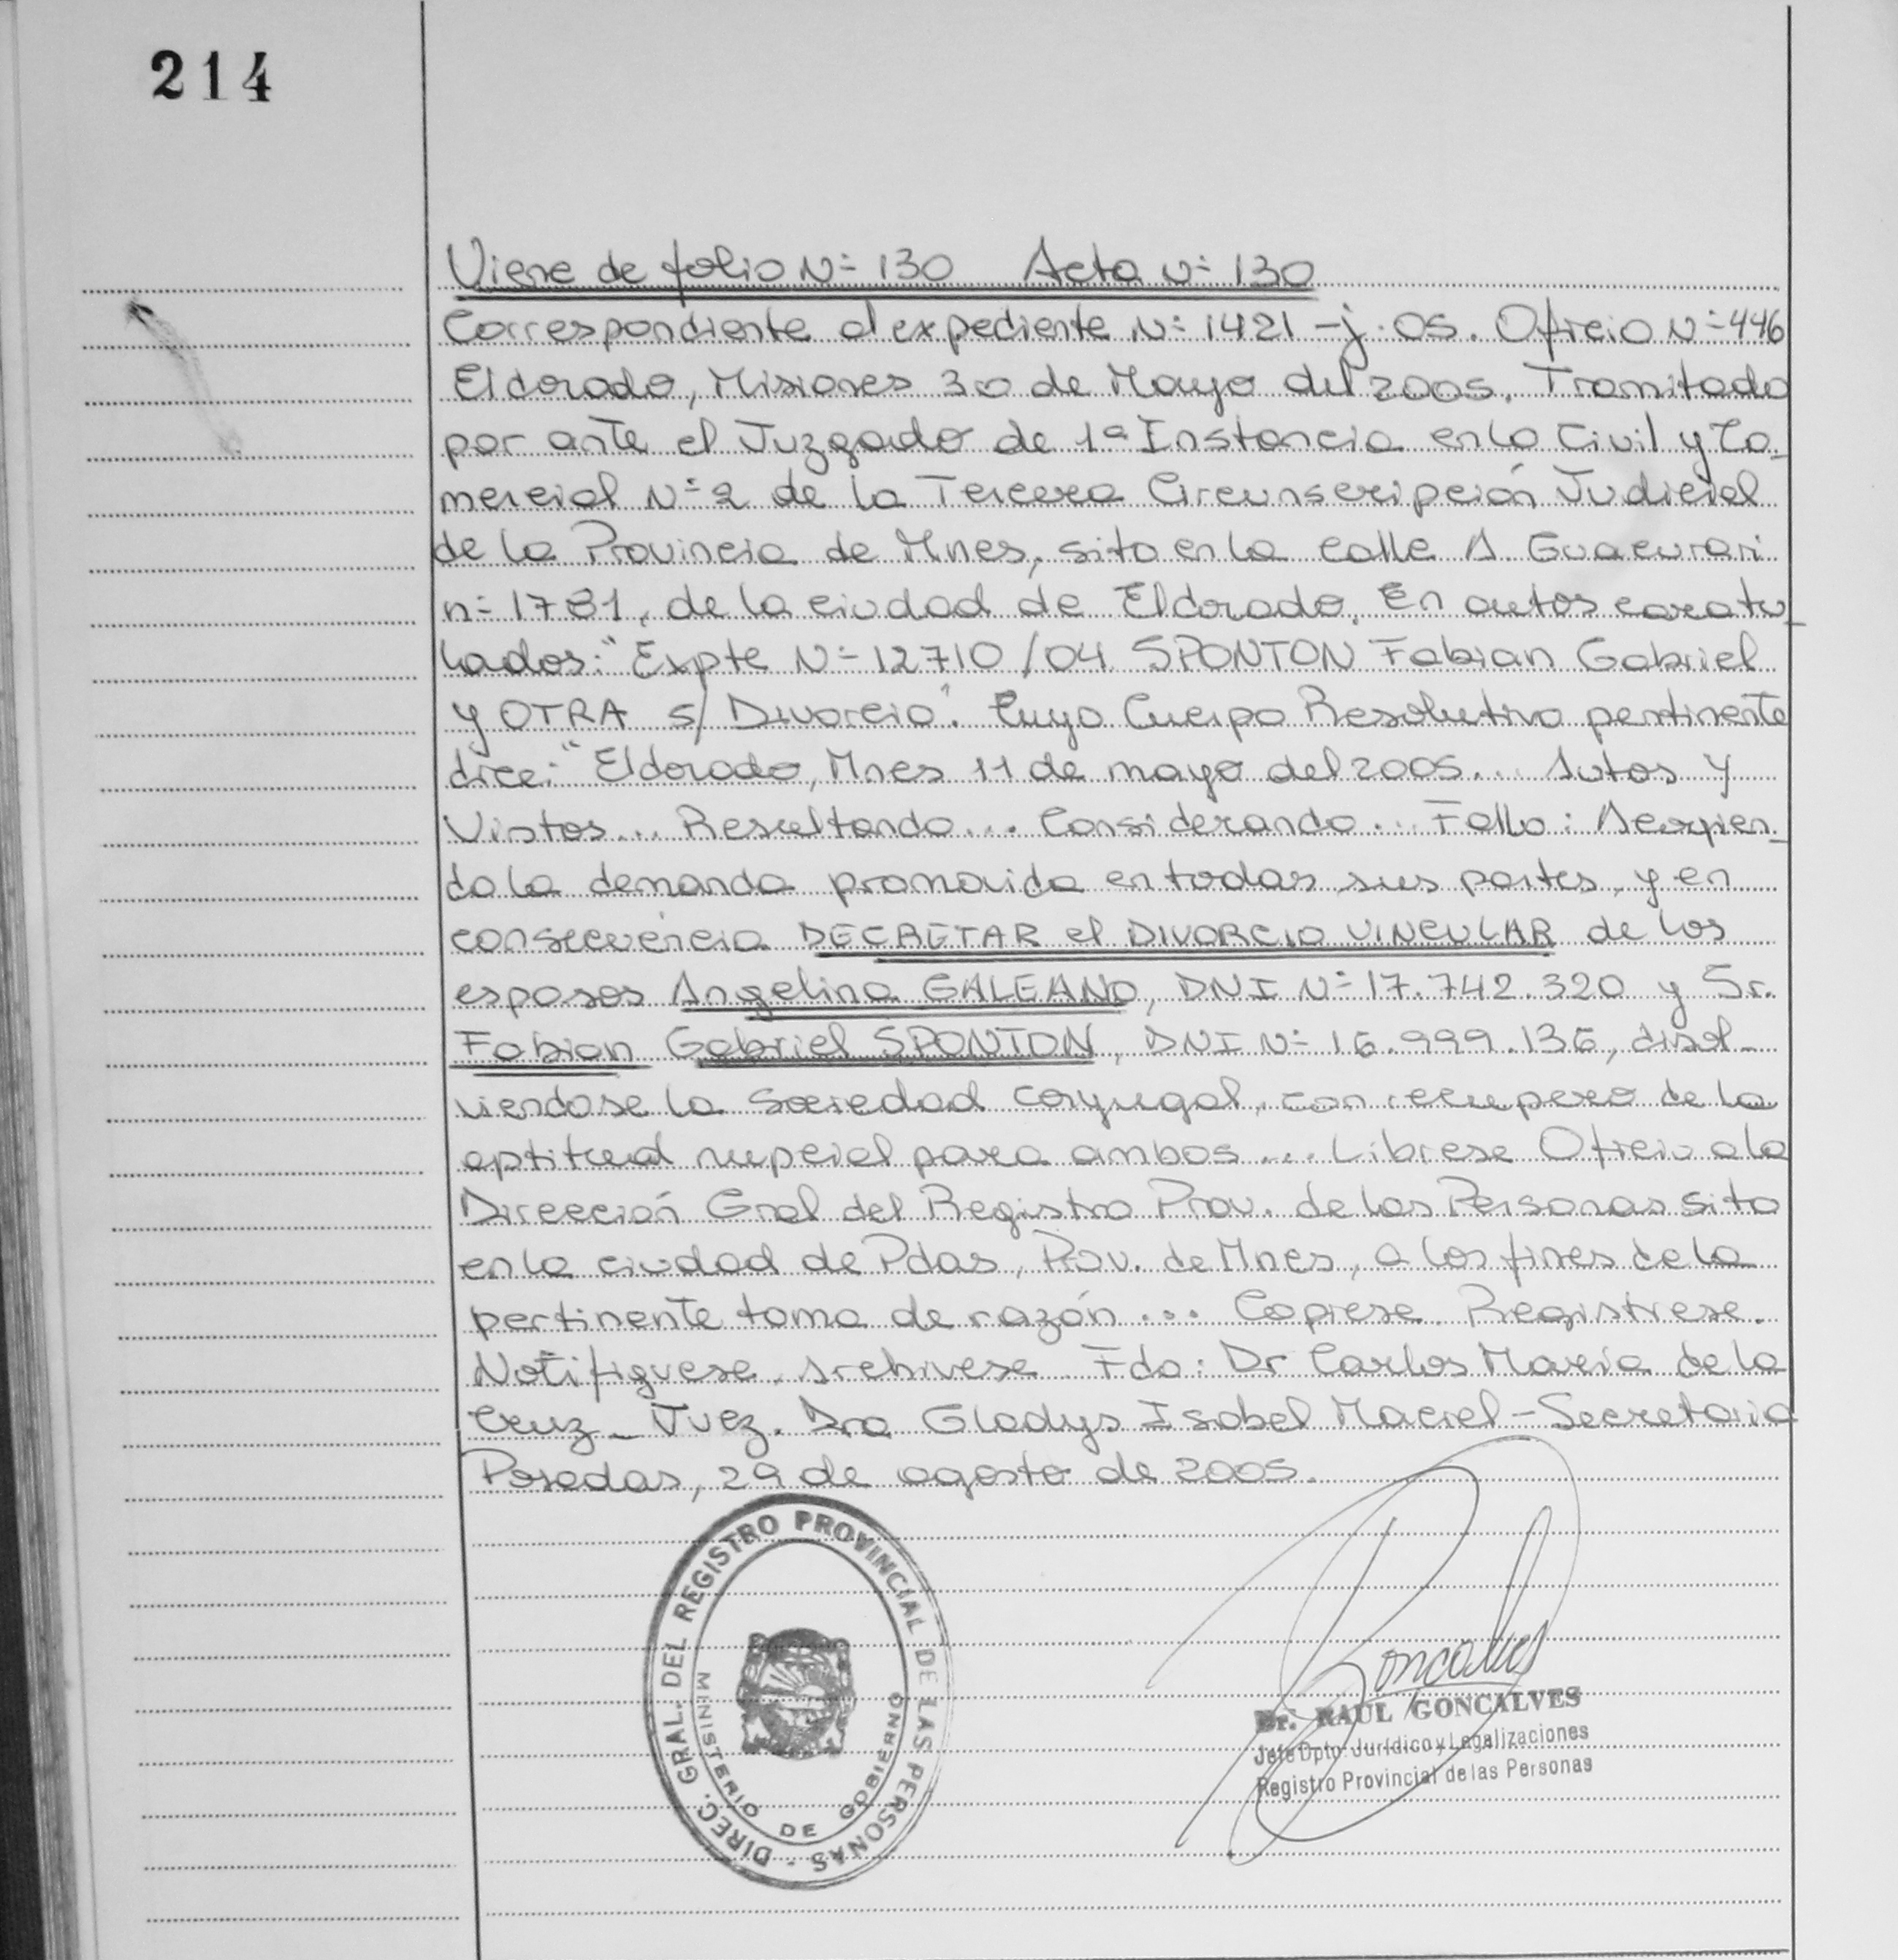 214
Viene de folio Nº 130 Acta Nº 130
Correspondiente al expediente Nº 1421-j-05. Oficio Nº 446
Eldorado, Misiones 30 de Mayo del 2005. Tramitado
por ante el Juzgado de 1ª Instancia en lo Civil y Co-
mercial Nº 2 de la Tercera Circunscripción Judicial
de la Provincia de Mnes, sito en la calle A. Guacurari
nº 1781, de la ciudad de Eldorado. En autos caratu-
lados: "Expte Nº 12710/04 SPONTON Fabian Gabriel
y OTRA s/ Divorcio". Cuyo Cuerpo Resolutivo pertinente
dice: "Eldorado, Mnes 11 de mayo del 2005... Autos y
Vistos... Resultando... Considerando... Fallo: Acogien-
do la demanda promovida en todas sus partes, y en
consecuencia DECRETAR el DIVORCIO VINCULAR de los
esposos Angelina GALEANO, DNI Nº 17.742.320 y Sr.
Fabian Gabriel SPONTON, DNI Nº 16.999.136, disol-
viendose la Sociedad conyugal, con recupero de la
aptitud nupcial para ambos... Librese Oficio a la
Dirección Gral del Registro Prov. de las Personas sito
en la ciudad de Pdas, Prov. de Mnes, a los fines de la
pertinente toma de razón... Copiese. Registrese.
Notifiquese. Archivese. Fdo: Dr Carlos Maria de la
Cruz - Juez. Dra Gladys Isabel Maciel - Secretaria
Posadas, 29 de agosto de 2005.
DIREC. GRAL. DEL REGISTRO PROVINCIAL DE LAS PERSONAS -
MINISTERIO DE GOBIERNO
Goncalves
Dr. RAUL GONCALVES
Jefe Dpto. Jurídico y Legalizaciones
Registro Provincial de las Personas